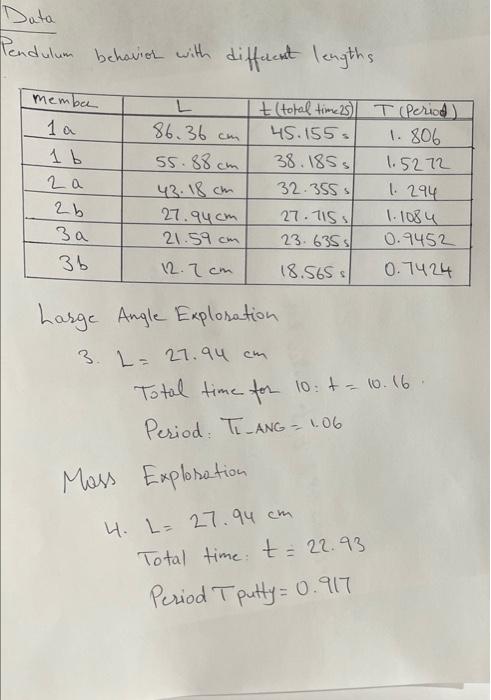 Data
Pendulum behavior with different lengths
member L t (total time 25) T (Period)
1a 86.36 cm 45.155 s 1.806
1b 55.88 cm 38.185 s 1.5272
2a 43.18 cm 32.355 s 1.294
2b 27.94 cm 27.715 s 1.1084
3a 21.59 cm 23.635 s 0.9452
3b 12.7 cm 18.565 s 0.7424
Large Angle Exploration
3. L = 27.94 cm
Total time for 10: t = 10.16.
Period: TL-ANG = 1.06
Mass Exploration
4. L = 27.94 cm
Total time: t = 22.93
Period T putty = 0.917